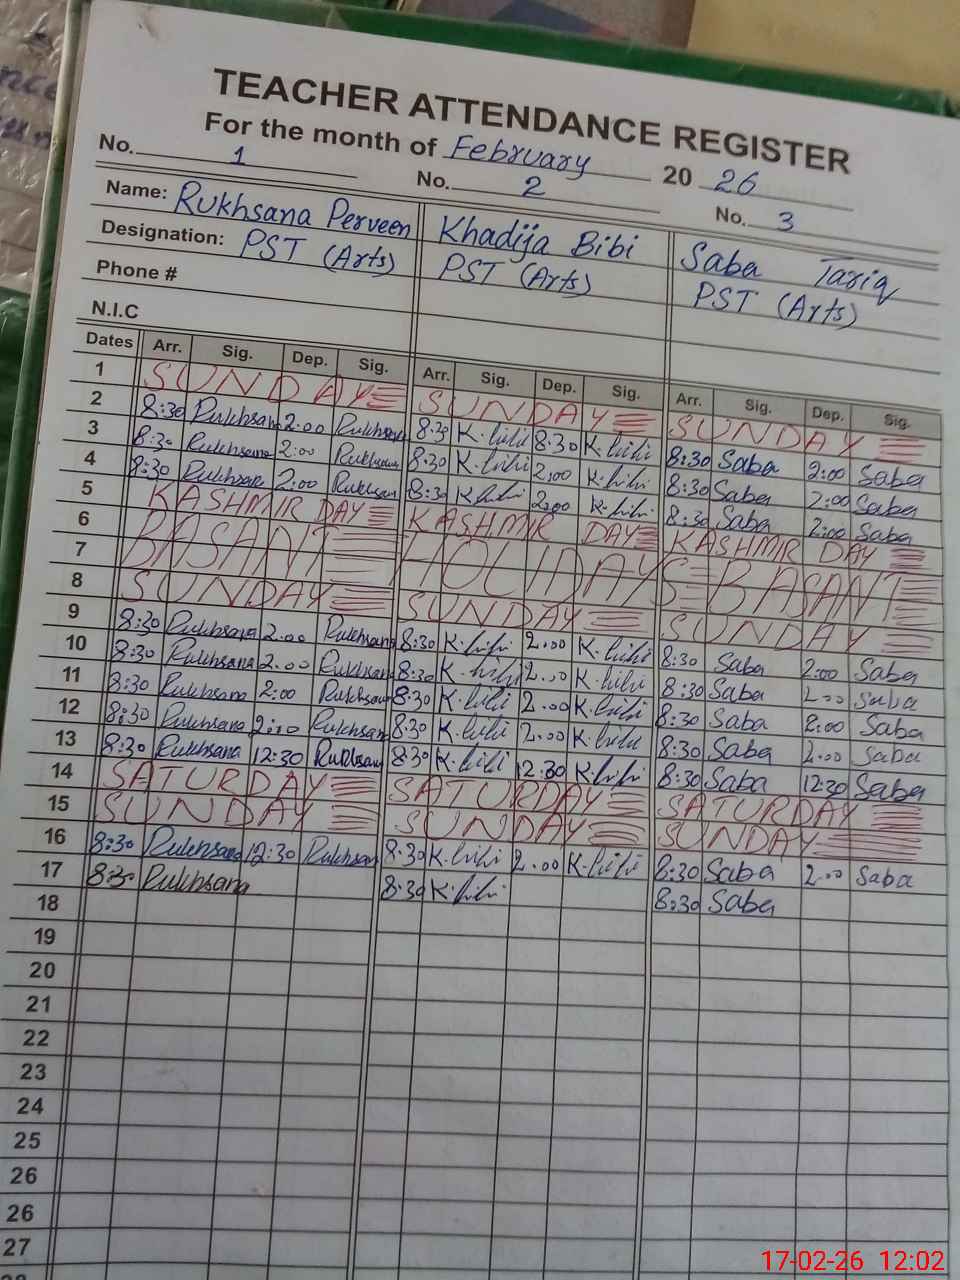 TEACHER ATTENDANCE REGISTER
For the month of February 2026
No. 1 No. 2 No. 3
Name: Rukhsana Perveen Khadija Bibi Saba Tariq
Designation: PST (Arts) PST (Arts) PST (Arts)
Phone #
N.I.C
Dates Arr. Sig. Dep. Sig. Arr. Sig. Dep. Sig. Arr. Sig. Dep. Sig.
1 SUNDAY SUNDAY SUNDAY
2 8:30 Rukhsana 2:00 Rukhsana 8:30 K.bibi 8:30 K.bibi 8:30 Saba 2:00 Saba
3 8:30 Rukhsana 2:00 Rukhsana 8:30 K.bibi 2:00 K.bibi 8:30 Saba 2:00 Saba
4 8:30 Rukhsana 2:00 Rukhsana 8:30 K.bibi 2:00 K.bibi 8:30 Saba 2:00 Saba
5 KASHMIR DAY KASHMIR DAY KASHMIR DAY
6
7 BASANT HOLIDAYS BASANT
8 SUNDAY SUNDAY SUNDAY
9 8:30 Rukhsana 2.00 Rukhsana 8:30 K.bibi 2.00 K.bibi 8:30 Saba 2:00 Saba
10 8:30 Rukhsana 2.00 Rukhsana 8:30 K.bibi 2.00 K.bibi 8:30 Saba 2.00 Saba
11 8:30 Rukhsana 2:00 Rukhsana 8:30 K.bibi 2.00 K.bibi 8:30 Saba 2:00 Saba
12 8:30 Rukhsana 2:00 Rukhsana 8:30 K.bibi 2.00 K.bibi 8:30 Saba 2.00 Saba
13 8:30 Rukhsana 12:30 Rukhsana 8:30 K.bibi 12:30 K.bibi 8:30 Saba 12:30 Saba
14 SATURDAY SATURDAY SATURDAY
15 SUNDAY SUNDAY SUNDAY
16 8:30 Rukhsana 12:30 Rukhsana 8:30 K.bibi 2.00 K.bibi 8:30 Saba 2.00 Saba
17 8:30 Rukhsana 8:30 K.bibi 8:30 Saba
18
19
20
21
22
23
24
25
26
26
27
17-02-26 12:02